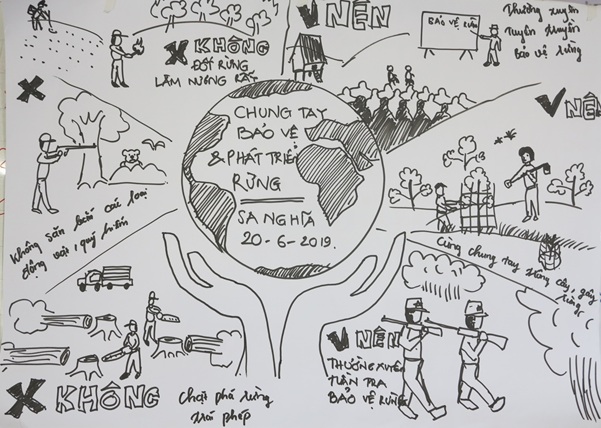 X KHÔNG
ĐỐT RỪNG
LÀM NƯƠNG RẪY
V NÊN
BẢO VỆ RỪNG
Thường xuyên
tuyên truyền
bảo vệ rừng
X
Không săn bắt các loại
động vật, quý hiếm
CHUNG TAY
BẢO VỆ
& PHÁT TRIỂN
RỪNG
SA NGHĨA
20-6-2019.
V NÊN
Cùng chung tay trồng cây, gây
rừng
X KHÔNG
Chặt phá rừng
trái phép
V NÊN
THƯỜNG XUYÊN
TUẦN TRA
BẢO VỆ RỪNG